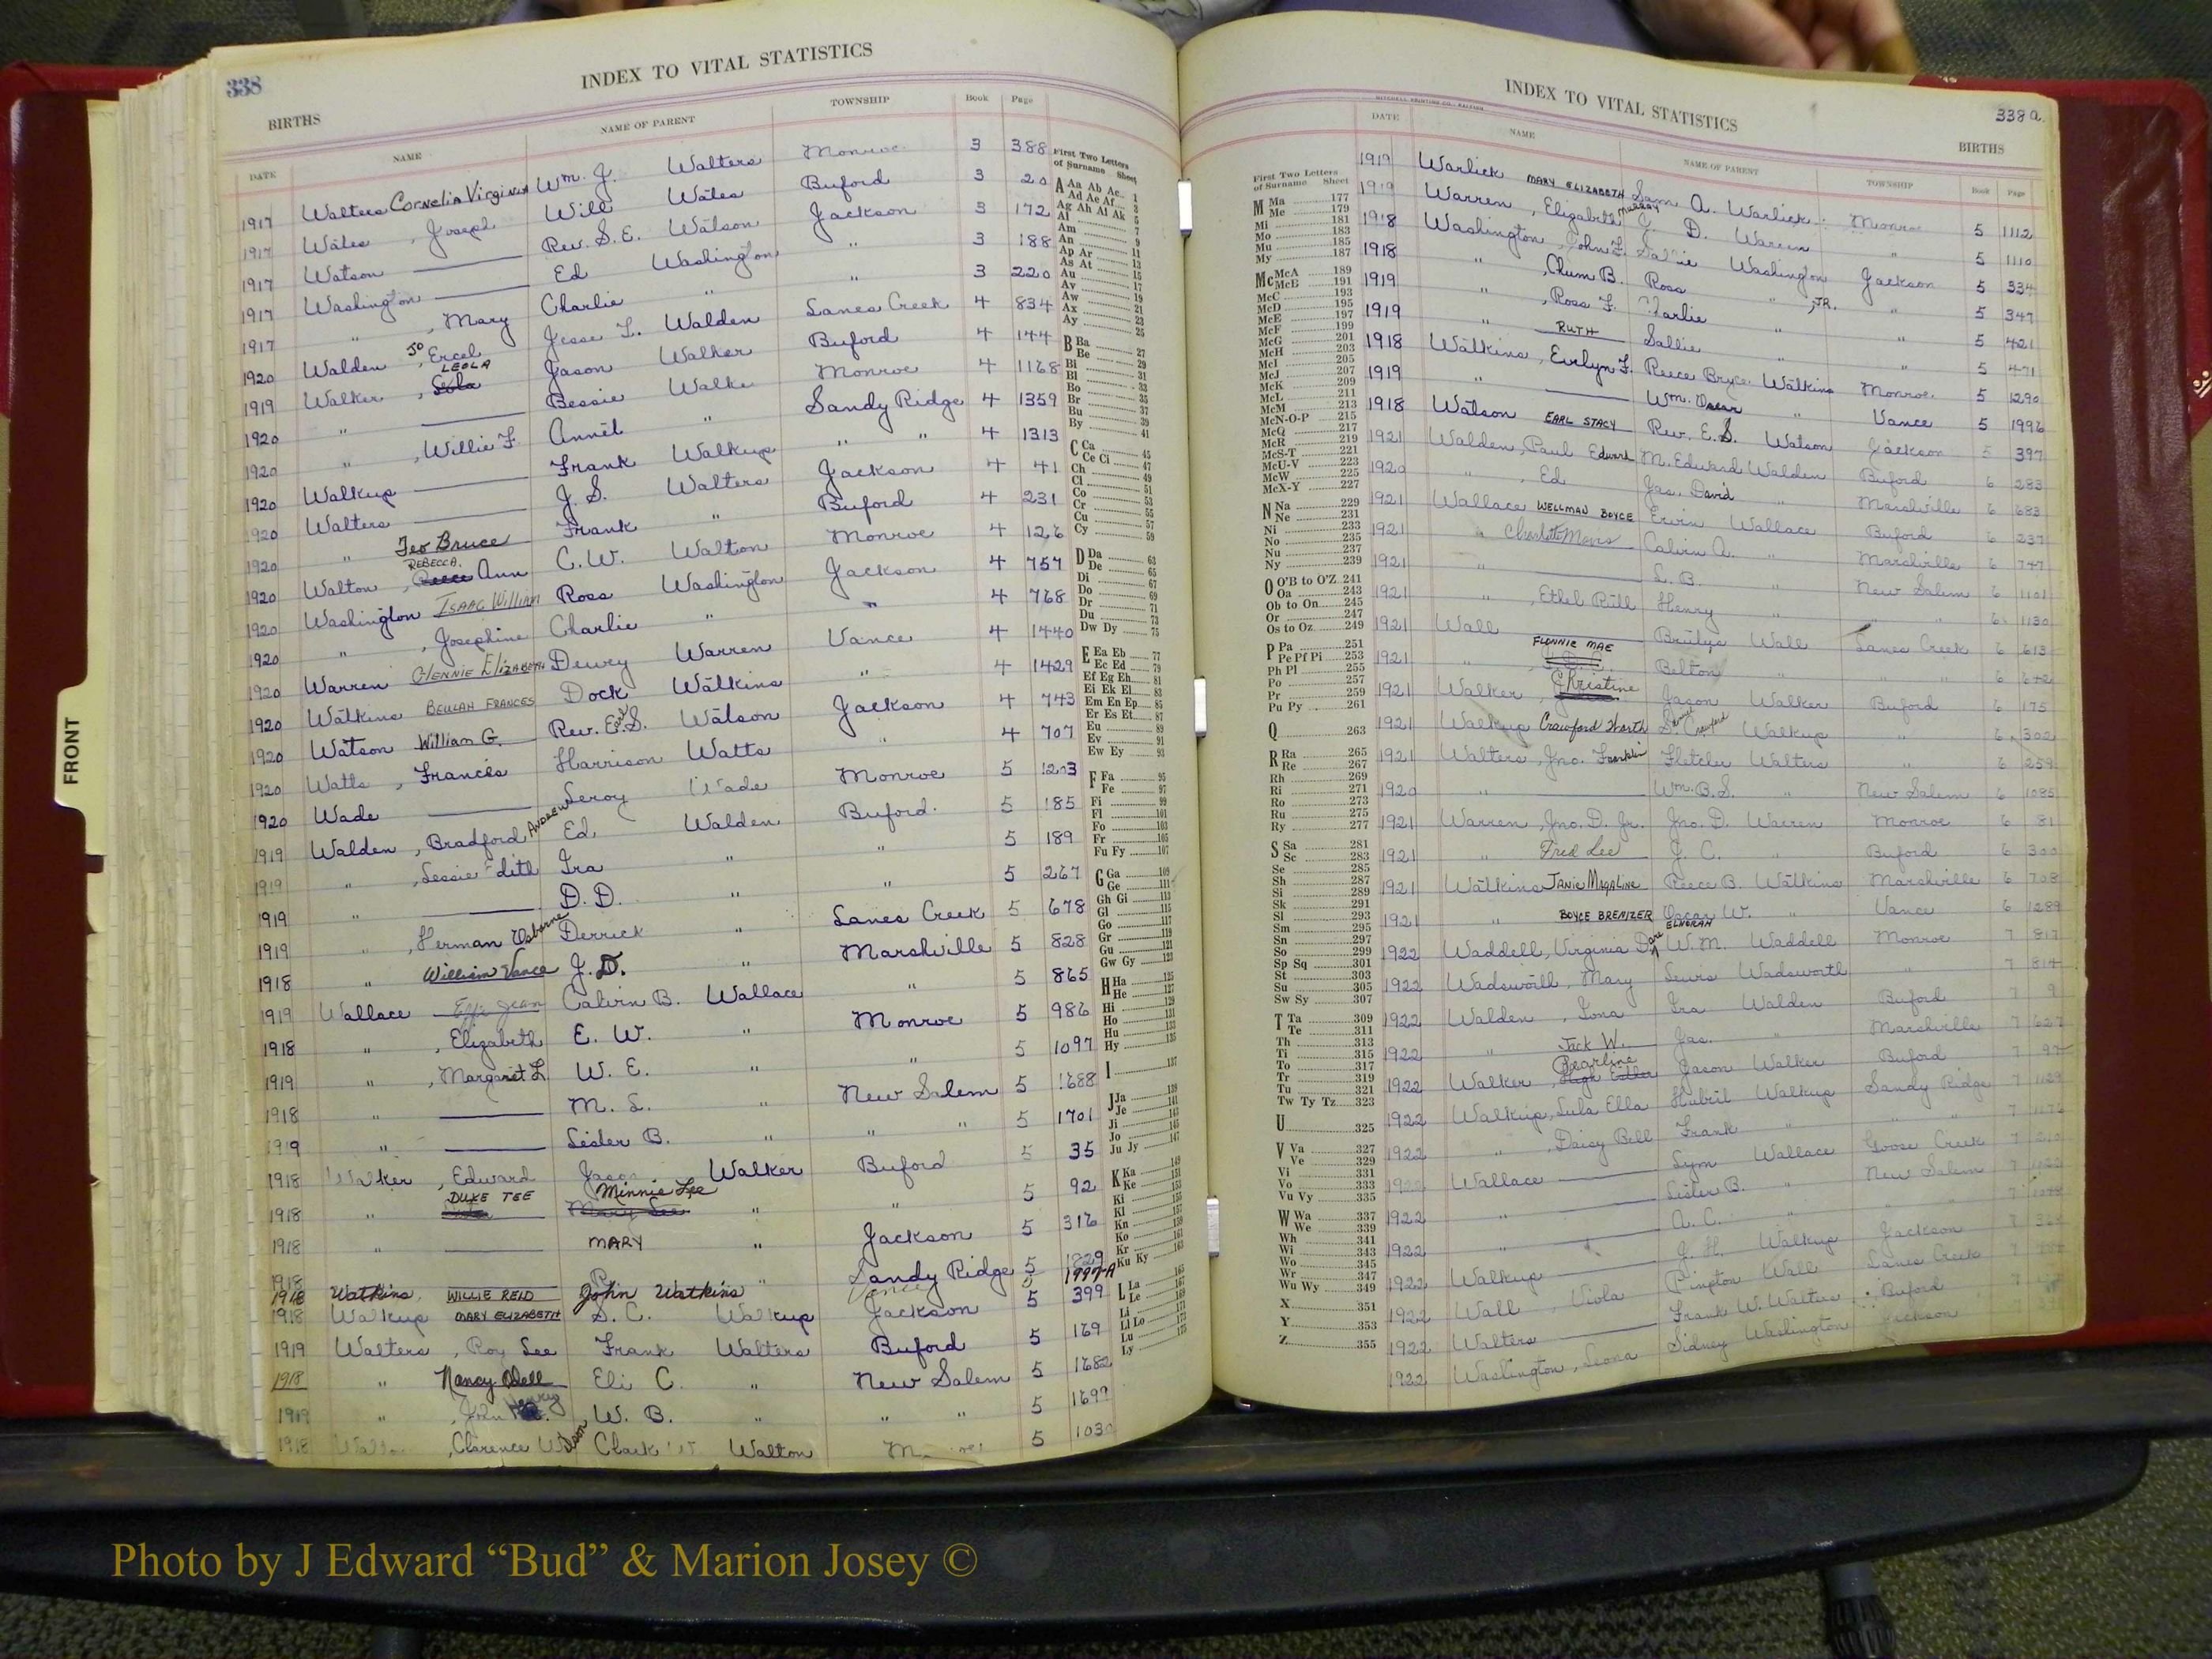 338
INDEX TO VITAL STATISTICS
BIRTHS
DATE NAME NAME OF PARENT TOWNSHIP Book Page
1917 Walters Cornelia Virginia Wm. J. Walters Monroe 3 388
1917 Wates, Joseph Will Wates Buford 3 20
1917 Watson Rev. S. E. Watson Jackson 3 172
1917 Washington Ed Washington " 3 188
1917 " , Mary Charlie " " 3 220
1920 Walden, Jo Ercel Jesse L. Walden Lanes Creek 4 834
1919 Walker, LEOLA Jason Walker Buford 4 144
1920 " Bessie Walke Monroe 4 1168
1920 " , Willie F. Annil " Sandy Ridge 4 1359
1920 Walkup Frank Walkup " " 4 1313
1920 Walters J. S. Walters Jackson 4 41
1920 " Teo Bruce Frank " Buford 4 231
1920 Walton, REBECCA Ann C. W. Walton Monroe 4 126
1920 Washington ISAAC WILLIAM Ross Washington Jackson 4 757
1920 " , Josephine Charlie " " 4 768
1920 Warren GLENNIE ELIZABETH Dewey Warren Vance 4 1440
1920 Watkins BEULAH FRANCES Dock Watkins " 4 1429
1920 Watson William G. Rev. Earl S. Watson Jackson 4 743
1920 Watts, Francis Harrison Watts " 4 707
1920 Wade Leroy Wade Monroe 5 1203
1919 Walden, Bradford ANDREW Ed. Walden Buford 5 185
1919 " , Lessie Edith Ira " " 5 189
1919 " D. D. " " 5 267
1919 " , Herman Osborne Derrick " Lanes Creek 5 678
1918 " William Vance J. D. " Marshville 5 828
1919 Wallace Effie Jean Calvin B. Wallace " 5 865
1918 " , Elizabeth E. W. " Monroe 5 986
1919 " , Margaret L. W. E. " " 5 1097
1918 " M. L. " New Salem 5 1688
1919 " Lester B. " " " 5 1701
1918 Walker, Edward Jason Walker Buford 5 35
1918 " DUKE TEE Minnie Lee " " 5 92
1918 " MARY " Jackson 5 316
1918 " Sandy Ridge 5 1829
1918 Watkins, WILLIE REID John Watkins Vance 5 1997-A
1918 Walkup MARY ELIZABETH S. C. Walkup Jackson 5 399
1919 Walters, Roy Lee Frank Walters Buford 5 169
1918 " Nancy Odell Eli C. " New Salem 5 1682
1919 " , John Henry W. B. " " " 5 1699
1918 , Clarence Wilson Clark W Walton 5 1030
First Two Letters
of Surname Sheet
A Aa Ab Ac 1
Ad Ae Af 3
Ag Ah Ai Ak 5
Al 7
Am 9
An 11
Ap Ar 13
As At 15
Au 17
Av 19
Aw 21
Ax 23
Ay 25
B Ba 27
Be 29
Bi 31
Bl 33
Bo 35
Br 37
Bu 39
By 41
C Ca 45
Ce Ci 47
Ch 49
Cl 51
Co 53
Cr 55
Cu 57
Cy 59
D Da 63
De 65
Di 67
Do 69
Dr 71
Du 73
Dw Dy 75
E Ea Eb 77
Ec Ed 79
Ef Eg Eh 81
Ei Ek El 83
Em En Ep 85
Er Es Et 87
Eu 89
Ev 91
Ew Ey 93
F Fa 95
Fe 97
Fi 99
Fl 101
Fo 103
Fr 105
Fu Fy 107
G Ga 109
Ge 111
Gh Gi 113
Gl 115
Go 117
Gr 119
Gu 121
Gw Gy 123
H Ha 125
He 127
Hi 129
Ho 131
Hu 133
Hy 135
I 137
J Ja 139
Je 141
Ji 143
Jo 145
Ju Jy 147
K Ka 149
Ke 151
Ki 153
Kl 155
Kn 157
Ko 159
Kr 161
Ku Ky 163
L La 165
Le 167
Li 169
Ll Lo 171
Lu 173
Ly 175
FRONT
338 a.
INDEX TO VITAL STATISTICS
MITCHELL PRINTING CO., RALEIGH
BIRTHS
DATE NAME NAME OF PARENT TOWNSHIP Book Page
First Two Letters
of Surname Sheet
M Ma 177
Me 179
Mi 181
Mo 183
Mu 185
My 187
Mc McA 189
McB 191
McC 193
McD 195
McE 197
McF 199
McG 201
McH 203
McI 205
McJ 207
McK 209
McL 211
McM 213
McN-O-P 215
McQ 217
McR 219
McS-T 221
McU-V 223
McW 225
McX-Y 227
N Na 229
Ne 231
Ni 233
No 235
Nu 237
Ny 239
O O'B to O'Z 241
Oa 243
Ob to On 245
Or 247
Os to Oz 249
P Pa 251
Pe Pf Pi 253
Ph Pl 255
Po 257
Pr 259
Pu Py 261
Q 263
R Ra 265
Re 267
Rh 269
Ri 271
Ro 273
Ru 275
Ry 277
S Sa 281
Sc 283
Se 285
Sh 287
Si 289
Sk 291
Sl 293
Sm 295
Sn 297
So 299
Sp Sq 301
St 303
Su 305
Sw Sy 307
T Ta 309
Te 311
Th 313
Ti 315
To 317
Tr 319
Tu 321
Tw Ty Tz 323
U 325
V Va 327
Ve 329
Vi 331
Vo 333
Vu Vy 335
W Wa 337
We 339
Wh 341
Wi 343
Wo 345
Wr 347
Wu Wy 349
X 351
Y 353
Z 355
1919 Warlick MARY ELIZABETH Sam A. Warlick Monroe 5 1112
1919 Warren, Elizabeth Murray C. D. Warren " 5 1110
1918 Washington, John L. Sallie Washington Jackson 5 334
1918 " , Chum B. Ross " , JR. " 5 347
1919 " , Ross F. Charlie " " 5 421
1919 " RUTH Sallie " " 5 471
1918 Watkins, Evelyn F. Reece Bryce Watkins Monroe 5 1290
1919 " Wm. Oscar " Vance 5 1996
1918 Watson EARL STACY Rev. E. S. Watson Jackson 5 397
1921 Walden, Paul Edward M. Edward Walden Buford 6 283
1920 " , Ed Jas. David " Marshville 6 683
1921 Wallace WELLMAN BOYCE Ervin Wallace Buford 6 237
1921 " Charlotte Mavis Calvin A. " Marshville 6 747
1921 " L. B. " New Salem 6 1101
1921 " , Ethel Ruth Henry " " 6 1130
1921 Wall Wall Lanes Creek 6 613
1921 " FLONNIE MAE Belton " " " 6 642
1921 Walker, Christine Jason Walker Buford 6 175
1921 Walkup Crawford Worth Walkup " 6 302
1921 Walters, Jno. Franklin Fletcher Walters " 6 259
1920 " Wm. B. S. " New Salem 6 1085
1921 Warren, Jno. D. Jr. Jno. D. Warren Monroe 6 81
1921 " Fred Lee J. C. " Buford 6 300
1921 Watkins JANIE MAGALINE Reece B. Watkins Marshville 6 708
1921 " BOYCE BRENIZER Oscar W. " Vance 6 1289
1922 Waddell, Virginia Dare ELNORAH W. M. Waddell Monroe 7 817
1922 Wadsworth, Mary Lewis Wadsworth " 7 814
1922 Walden, Iona Ira Walden Buford 7 9
1922 " Jack W. Jas. " Marshville 7 627
1922 Walker, Pearline Jason Walker Buford 7
1922 Walkup, Lula Ella Hubril Walkup Sandy Ridge 7
1922 " , Daisy Bell Frank " " " 7
1922 Wallace Lym Wallace Goose Creek 7
1922 " Lester B. " New Salem 7
1922 " A. C. " " 7
1922 Walkup J. H. Walkup Jackson
1922 Wall, Viola Pington Wall Lanes Creek
1922 Walters Frank W. Walters Buford
1922 Washington, Leona Sidney Washington Jackson
Photo by J Edward “Bud” & Marion Josey ©